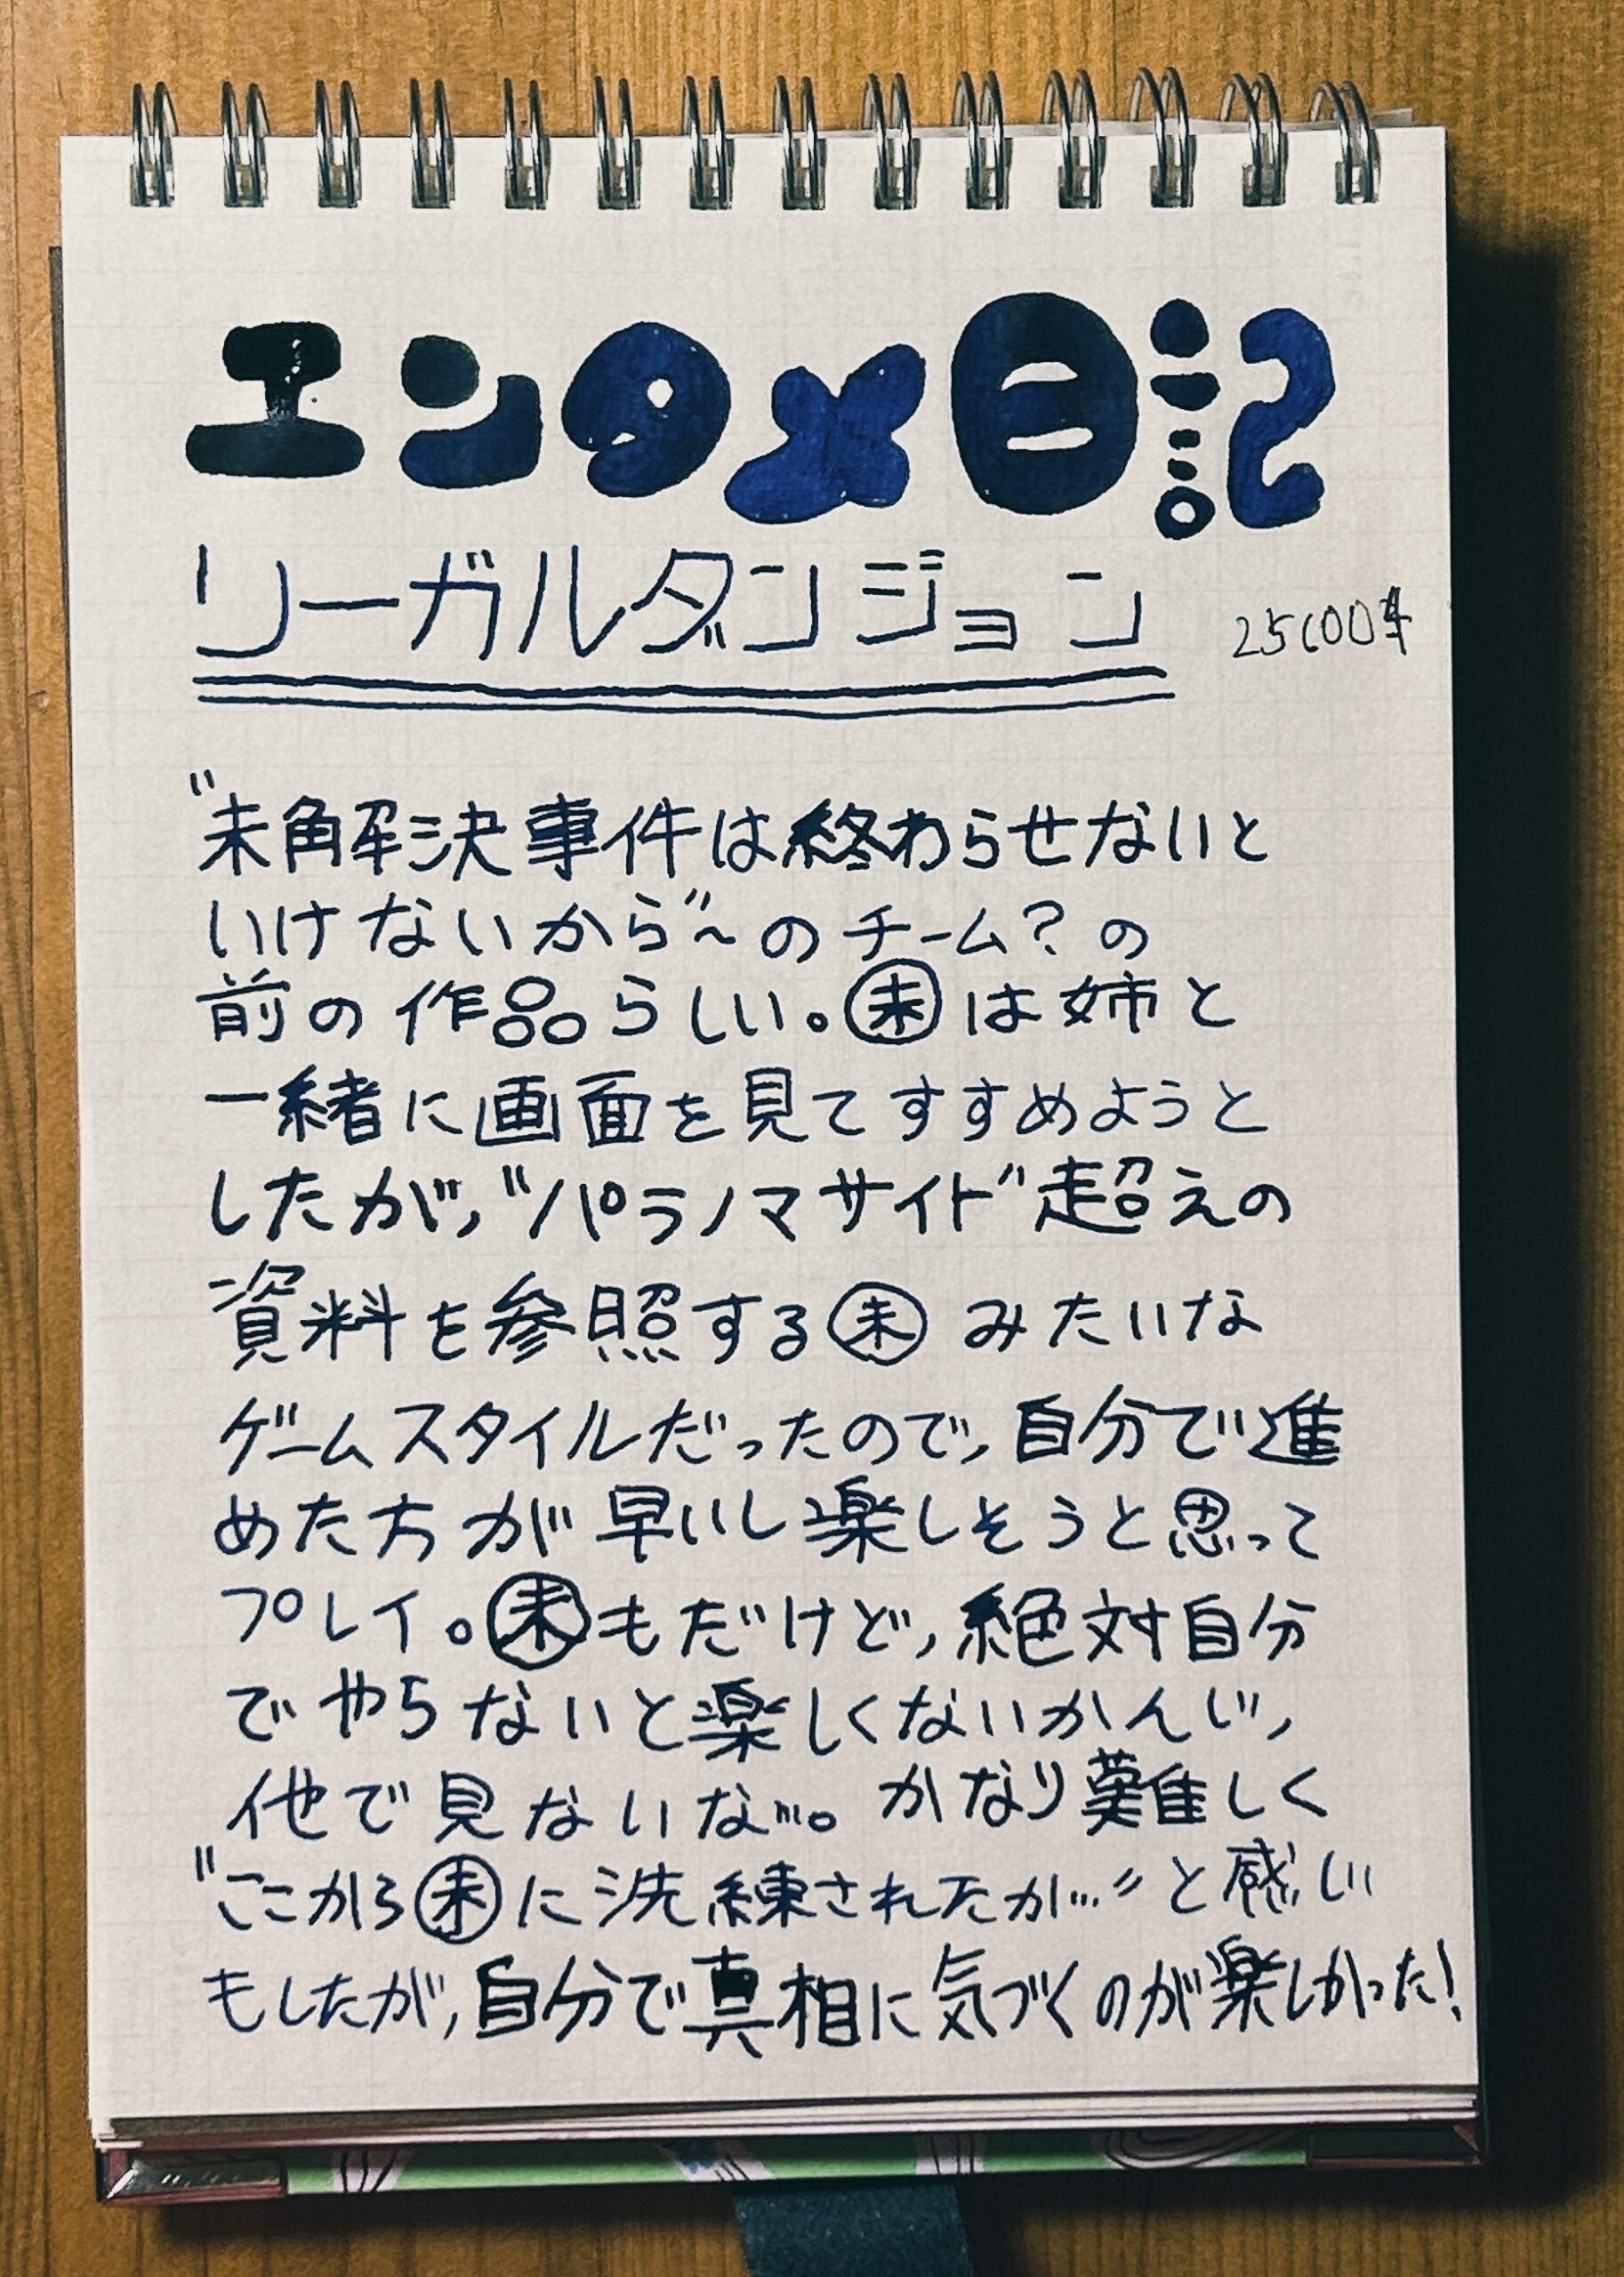 エンタメ日記
リーガルダンジョン
"未解決事件は終わらせないと
いけないから"〜のチーム?の
前の作品らしい。㊤は姉と
一緒に画面を見てすすめようと
したが、"パラノマサイト"超えの
資料を参照する未みたいな
ゲームスタイルだったので、自分で進
めた方が早いし楽しそうと思って
プレイ。未もだけど、絶対自分
でやらないと楽しくないかんじ、
他で見ないな…。かなり難しく
"ここから未に洗練されたか…"と感じ
もしたが、自分で真相に気づくのが楽しかった!